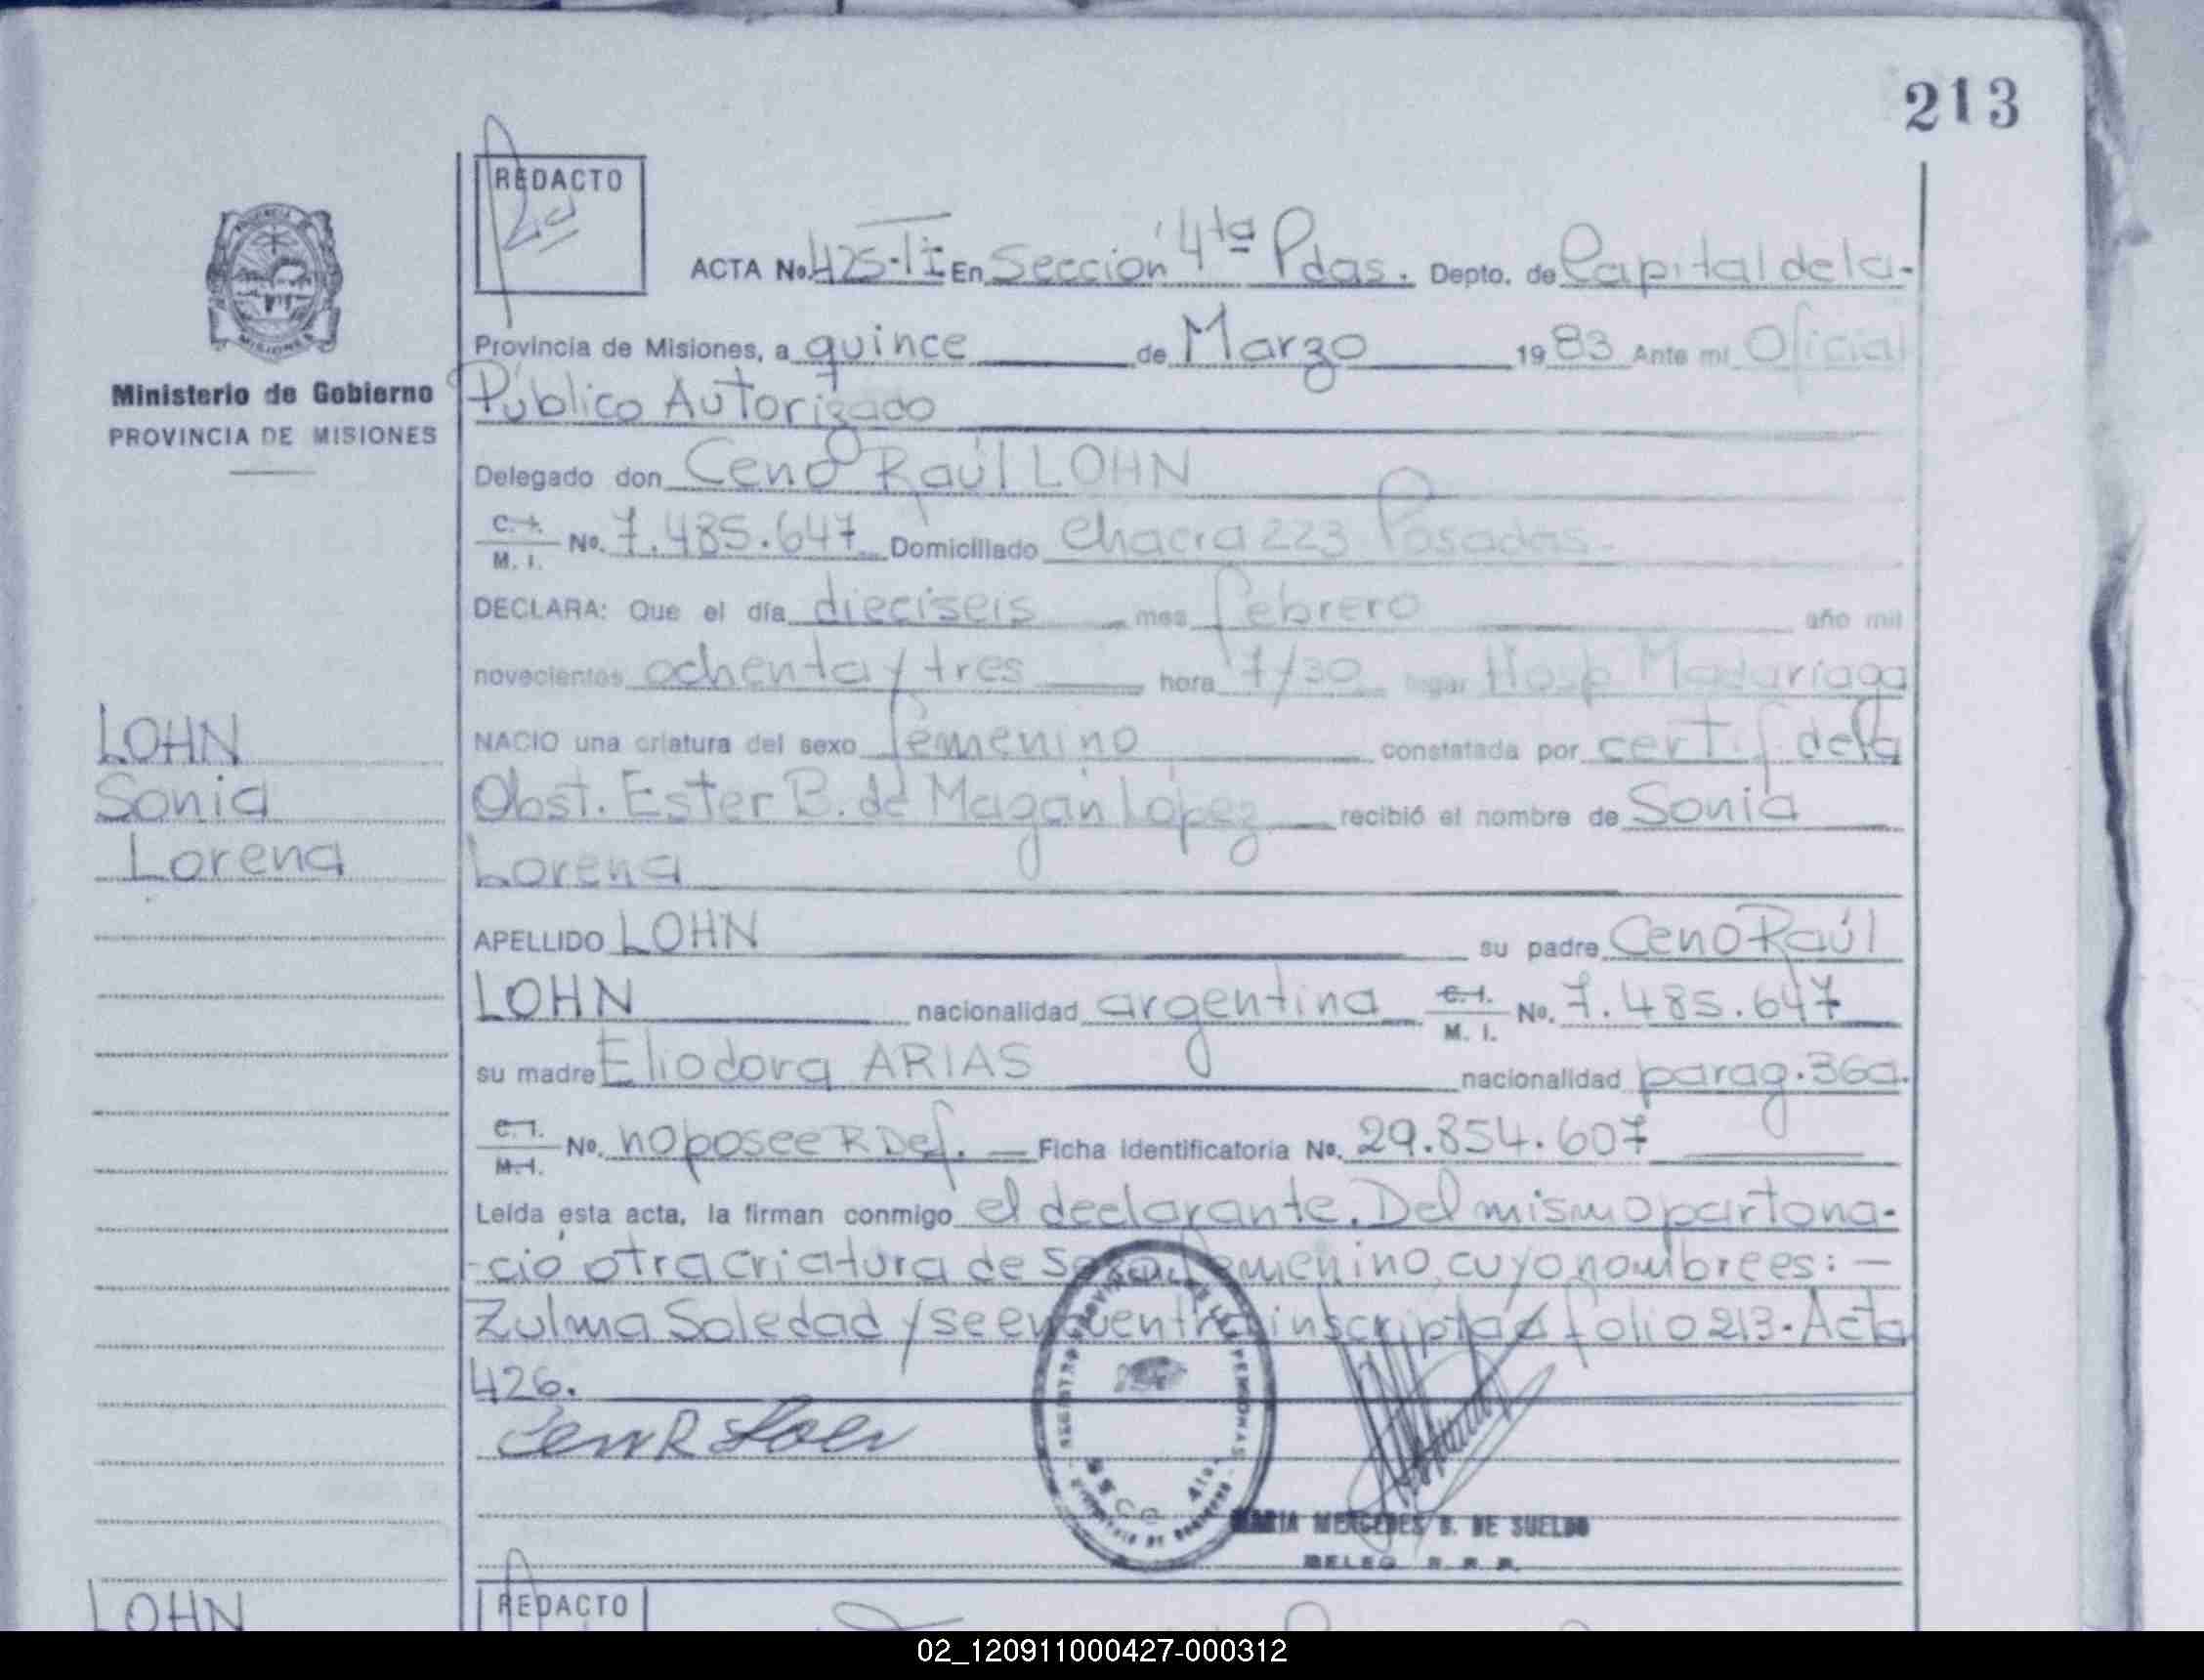 213
REDACTO
ACTA No. 425-TI En Sección 4ta Pdas. Depto. de Capital de la-
Provincia de Misiones, a quince de Marzo 19 83 Ante mi Oficial
Público Autorizado
Ministerio de Gobierno
PROVINCIA DE MISIONES
Delegado don Ceno Raúl LOHN
C. I. M. I. No. 7.485.647 Domiciliado Chacra 223 Posadas-
DECLARA: Que el día dieciseis mes febrero año mil
novecientos ochenta y tres hora 7/30 lugar Hosp Madariaga
LOHN
Sonia
Lorena
NACIO una criatura del sexo femenino constatada por certif de la
Obst. Ester B. de Magán López recibió el nombre de Sonia
Lorena
APELLIDO LOHN su padre Ceno Raúl
LOHN nacionalidad argentina C. I. M. I. No. 7.485.647
su madre Eliodora ARIAS nacionalidad parag. 36a.
C. I. M. I. No. no posee R Def. Ficha Identificatoria No. 29.854.607
Leída esta acta, la firman conmigo el declarante. Del mismo parto na-
-ció otra criatura de sexo femenino, cuyo nombre es: -
Zulma Soledad y se encuentra inscripta á folio 213. Acta
426.
MARIA MERCEDES B. DE SUELDO
DELEG R. P.
LOHN
REDACTO
02_120911000427-000312